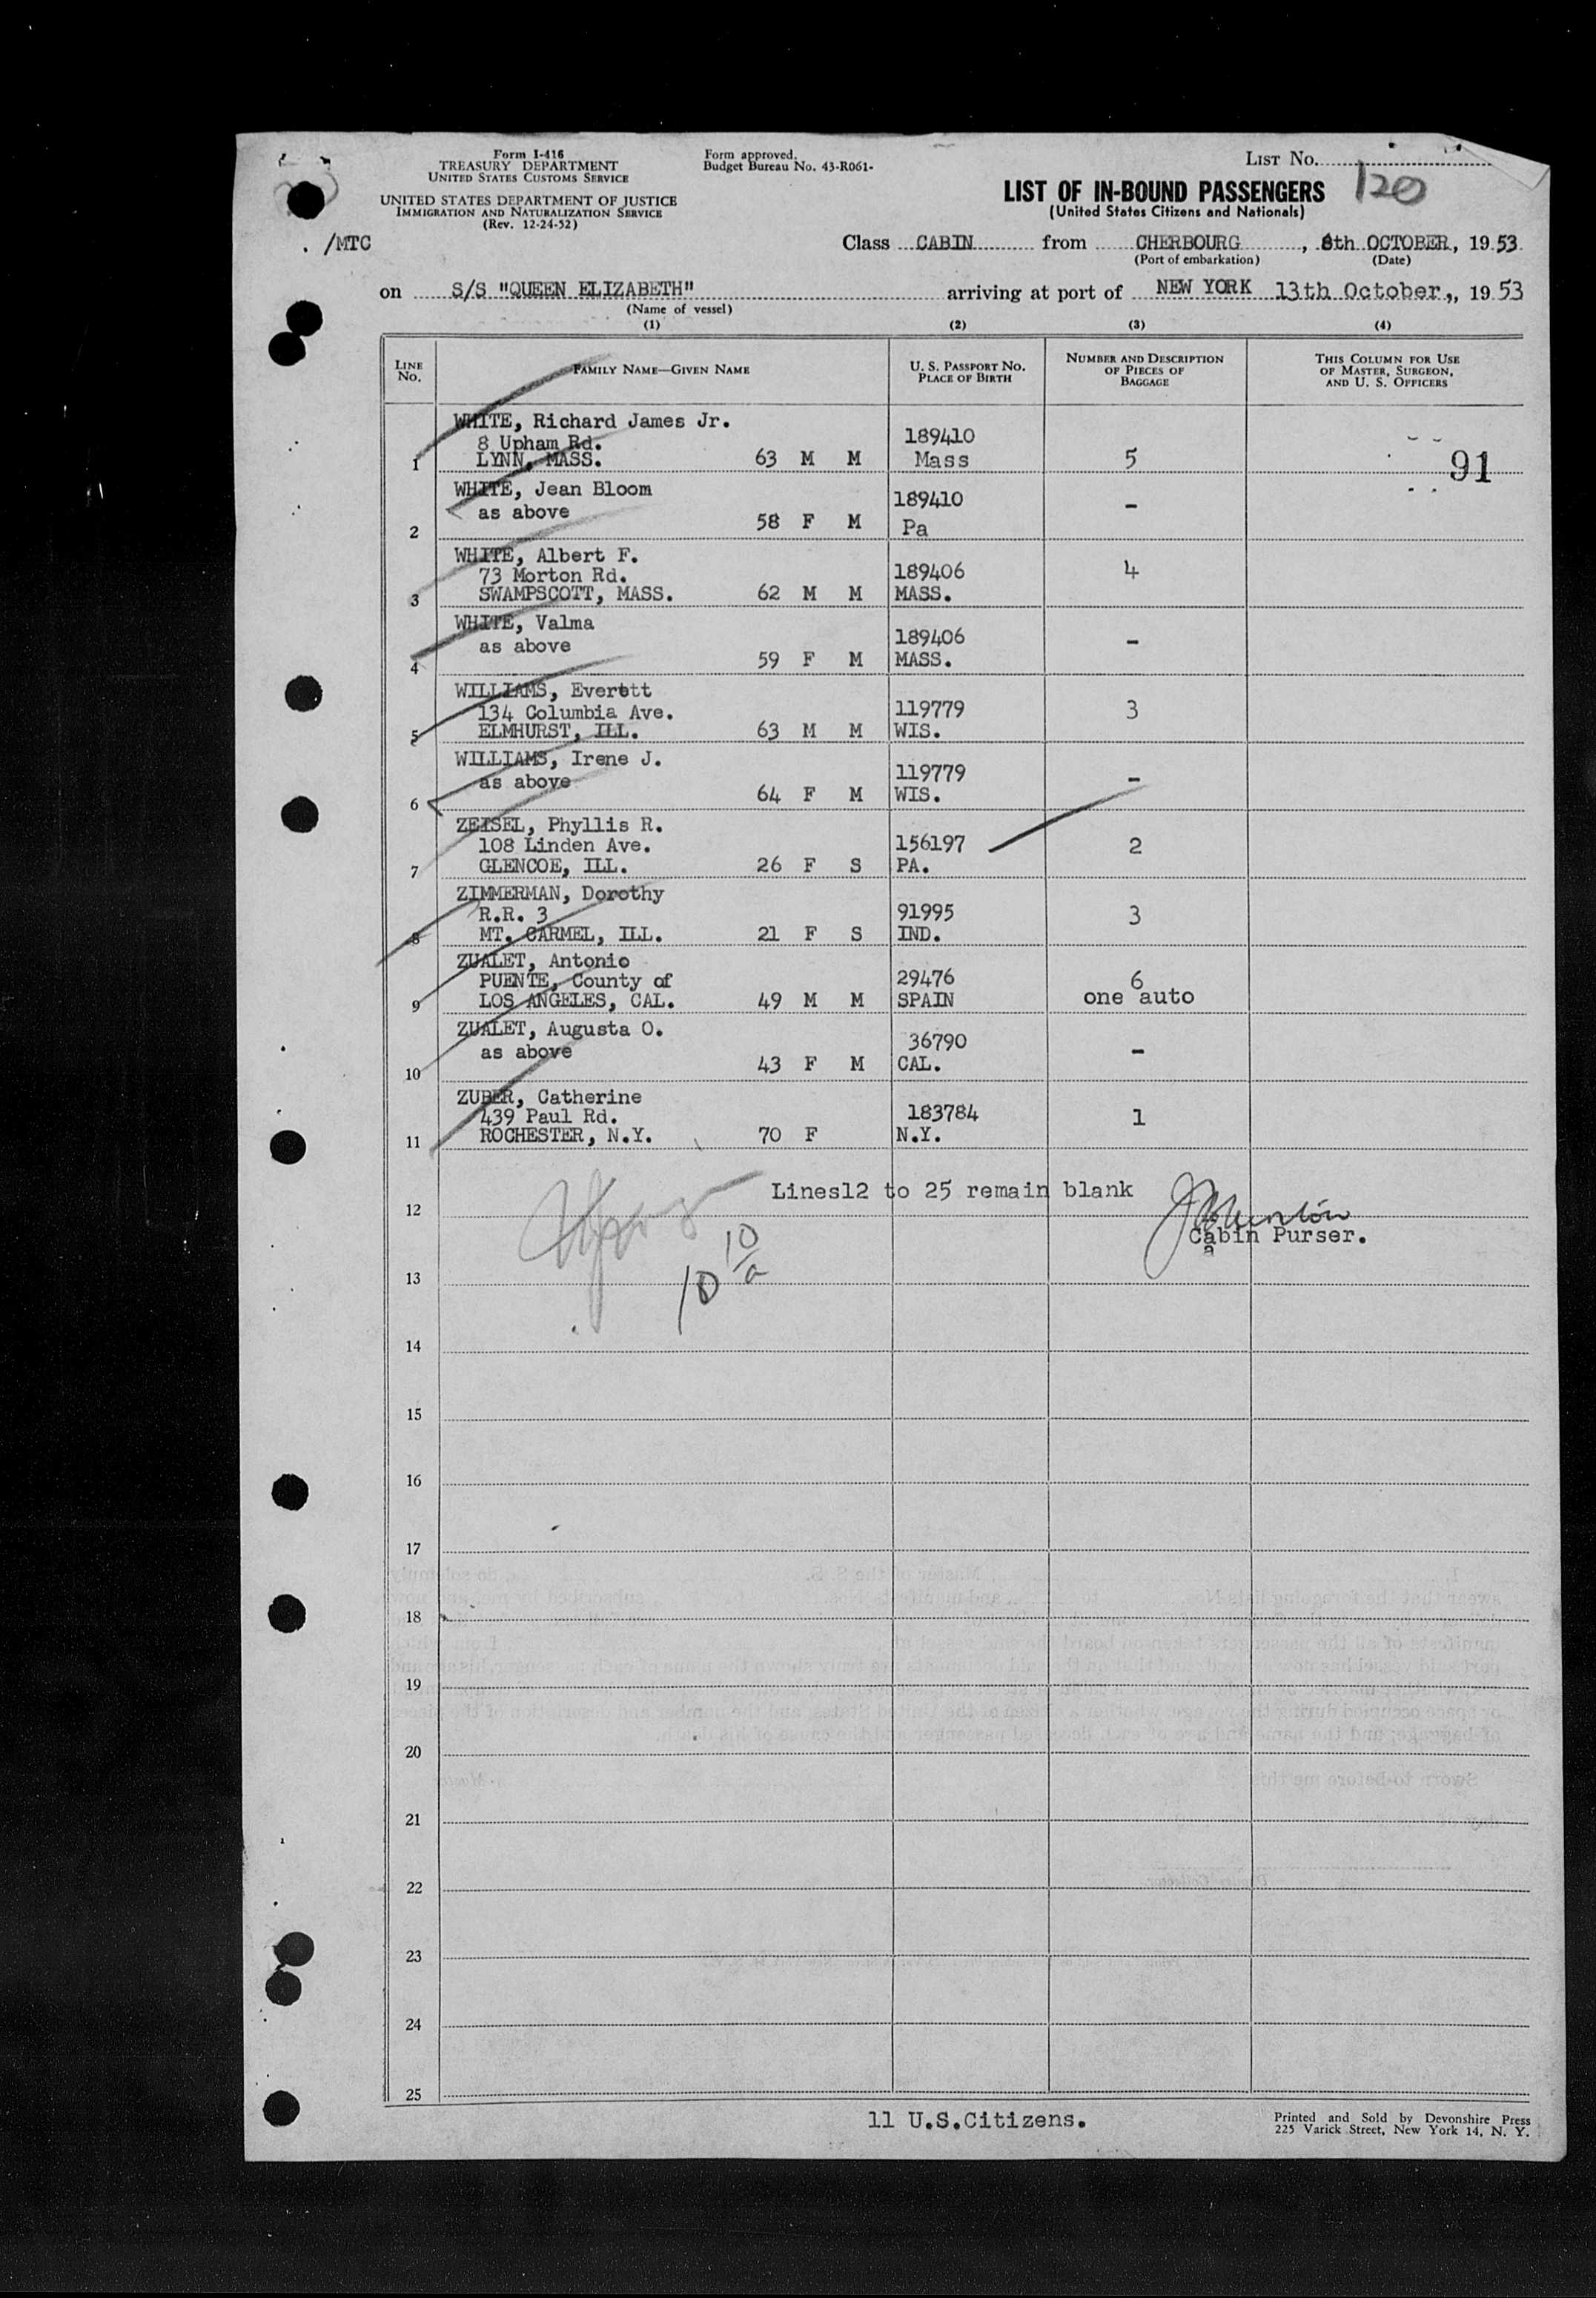 Form I-416
TREASURY DEPARTMENT
UNITED STATES CUSTOMS SERVICE
Form approved.
Budget Bureau No. 43-R061-
LIST NO.
120
UNITED STATES DEPARTMENT OF JUSTICE
IMMIGRATION AND NATURALIZATION SERVICE
(Rev. 12-24-52)
LIST OF IN-BOUND PASSENGERS
(United States Citizens and Nationals)
/MTC
Class CABIN from CHERBOURG, 8th OCTOBER, 1953
(Port of embarkation) (Date)
on S/S "QUEEN ELIZABETH" arriving at port of NEW YORK 13th October,, 1953
(Name of vessel)
(1) (2) (3) (4)
LINE No. FAMILY NAME—GIVEN NAME U. S. PASSPORT NO. PLACE OF BIRTH NUMBER AND DESCRIPTION OF PIECES OF BAGGAGE THIS COLUMN FOR USE OF MASTER, SURGEON, AND U. S. OFFICERS
WHITE, Richard James Jr.
8 Upham Rd. 189410
1 LYNN, MASS. 63 M M Mass 5 91
WHITE, Jean Bloom 189410
as above -
2 58 F M Pa
WHITE, Albert F.
73 Morton Rd. 189406 4
3 SWAMPSCOTT, MASS. 62 M M MASS.
WHITE, Valma 189406
as above -
4 59 F M MASS.
WILLIAMS, Everett
134 Columbia Ave. 119779 3
5 ELMHURST, ILL. 63 M M WIS.
WILLIAMS, Irene J. 119779
as above -
6 64 F M WIS.
ZEISEL, Phyllis R.
108 Linden Ave. 156197 2
7 GLENCOE, ILL. 26 F S PA.
ZIMMERMAN, Dorothy
R.R. 3 91995 3
8 MT. CARMEL, ILL. 21 F S IND.
ZUALET, Antonio
PUENTE, County of 29476 6
9 LOS ANGELES, CAL. 49 M M SPAIN one auto
ZUALET, Augusta O. 36790
as above -
10 43 F M CAL.
ZUBER, Catherine
439 Paul Rd. 183784 1
11 ROCHESTER, N.Y. 70 F N.Y.
Lines12 to 25 remain blank
12
Cabin Purser.
a
10
10/a
13
14
15
16
17
18
19
20
21
22
23
24
25
11 U.S.Citizens.
Printed and Sold by Devonshire Press
225 Varick Street, New York 14, N. Y.